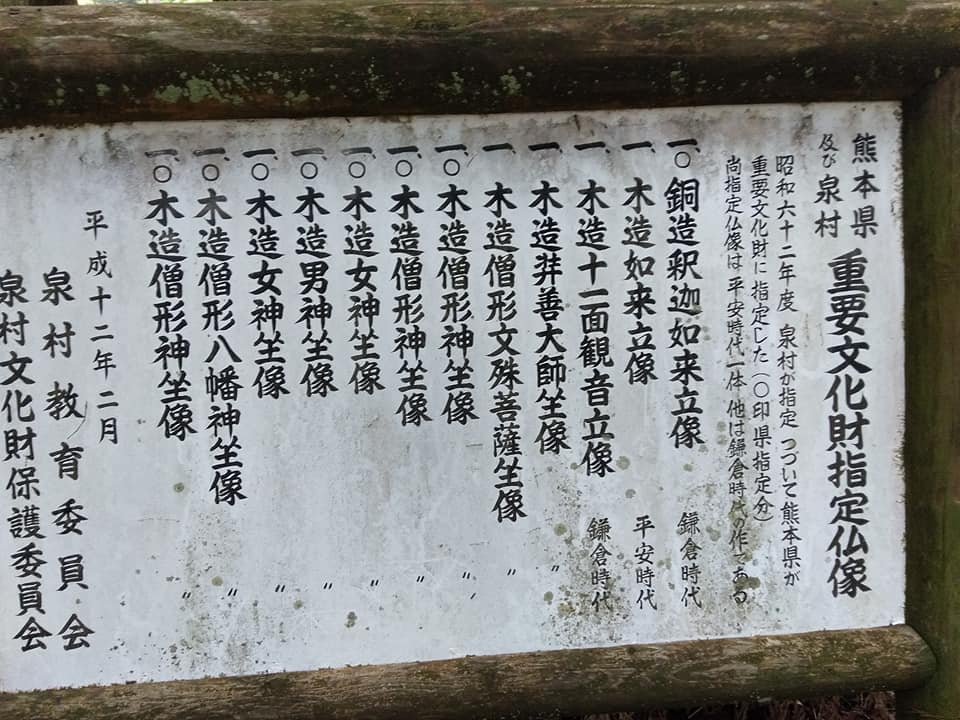 熊本県
及び泉村
重要文化財指定仏像
昭和六十二年度 泉村が指定 つづいて熊本県が
重要文化財に指定した(〇印県指定分)
尚指定仏像は平安時代一体 他は鎌倉時代の作である
一、〇銅造釈迦如来立像 鎌倉時代
一、木造如来立像 平安時代
一、木造十一面観音立像 鎌倉時代
一、木造弉善大師坐像 〃
一、木造僧形文殊菩薩坐像 〃
一、〇木造僧形神坐像 〃
一、〇木造僧形神坐像 〃
一、〇木造女神坐像 〃
一、〇木造男神坐像 〃
一、〇木造女神坐像 〃
一、〇木造僧形八幡神坐像 〃
一、〇木造僧形神坐像 〃
平成十二年二月
泉村教育委員会
泉村文化財保護委員会